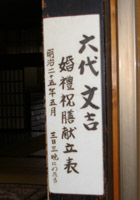 六代 文吉
婚禮祝膳献立表
明治二十五年五月
三日三晩にわたる